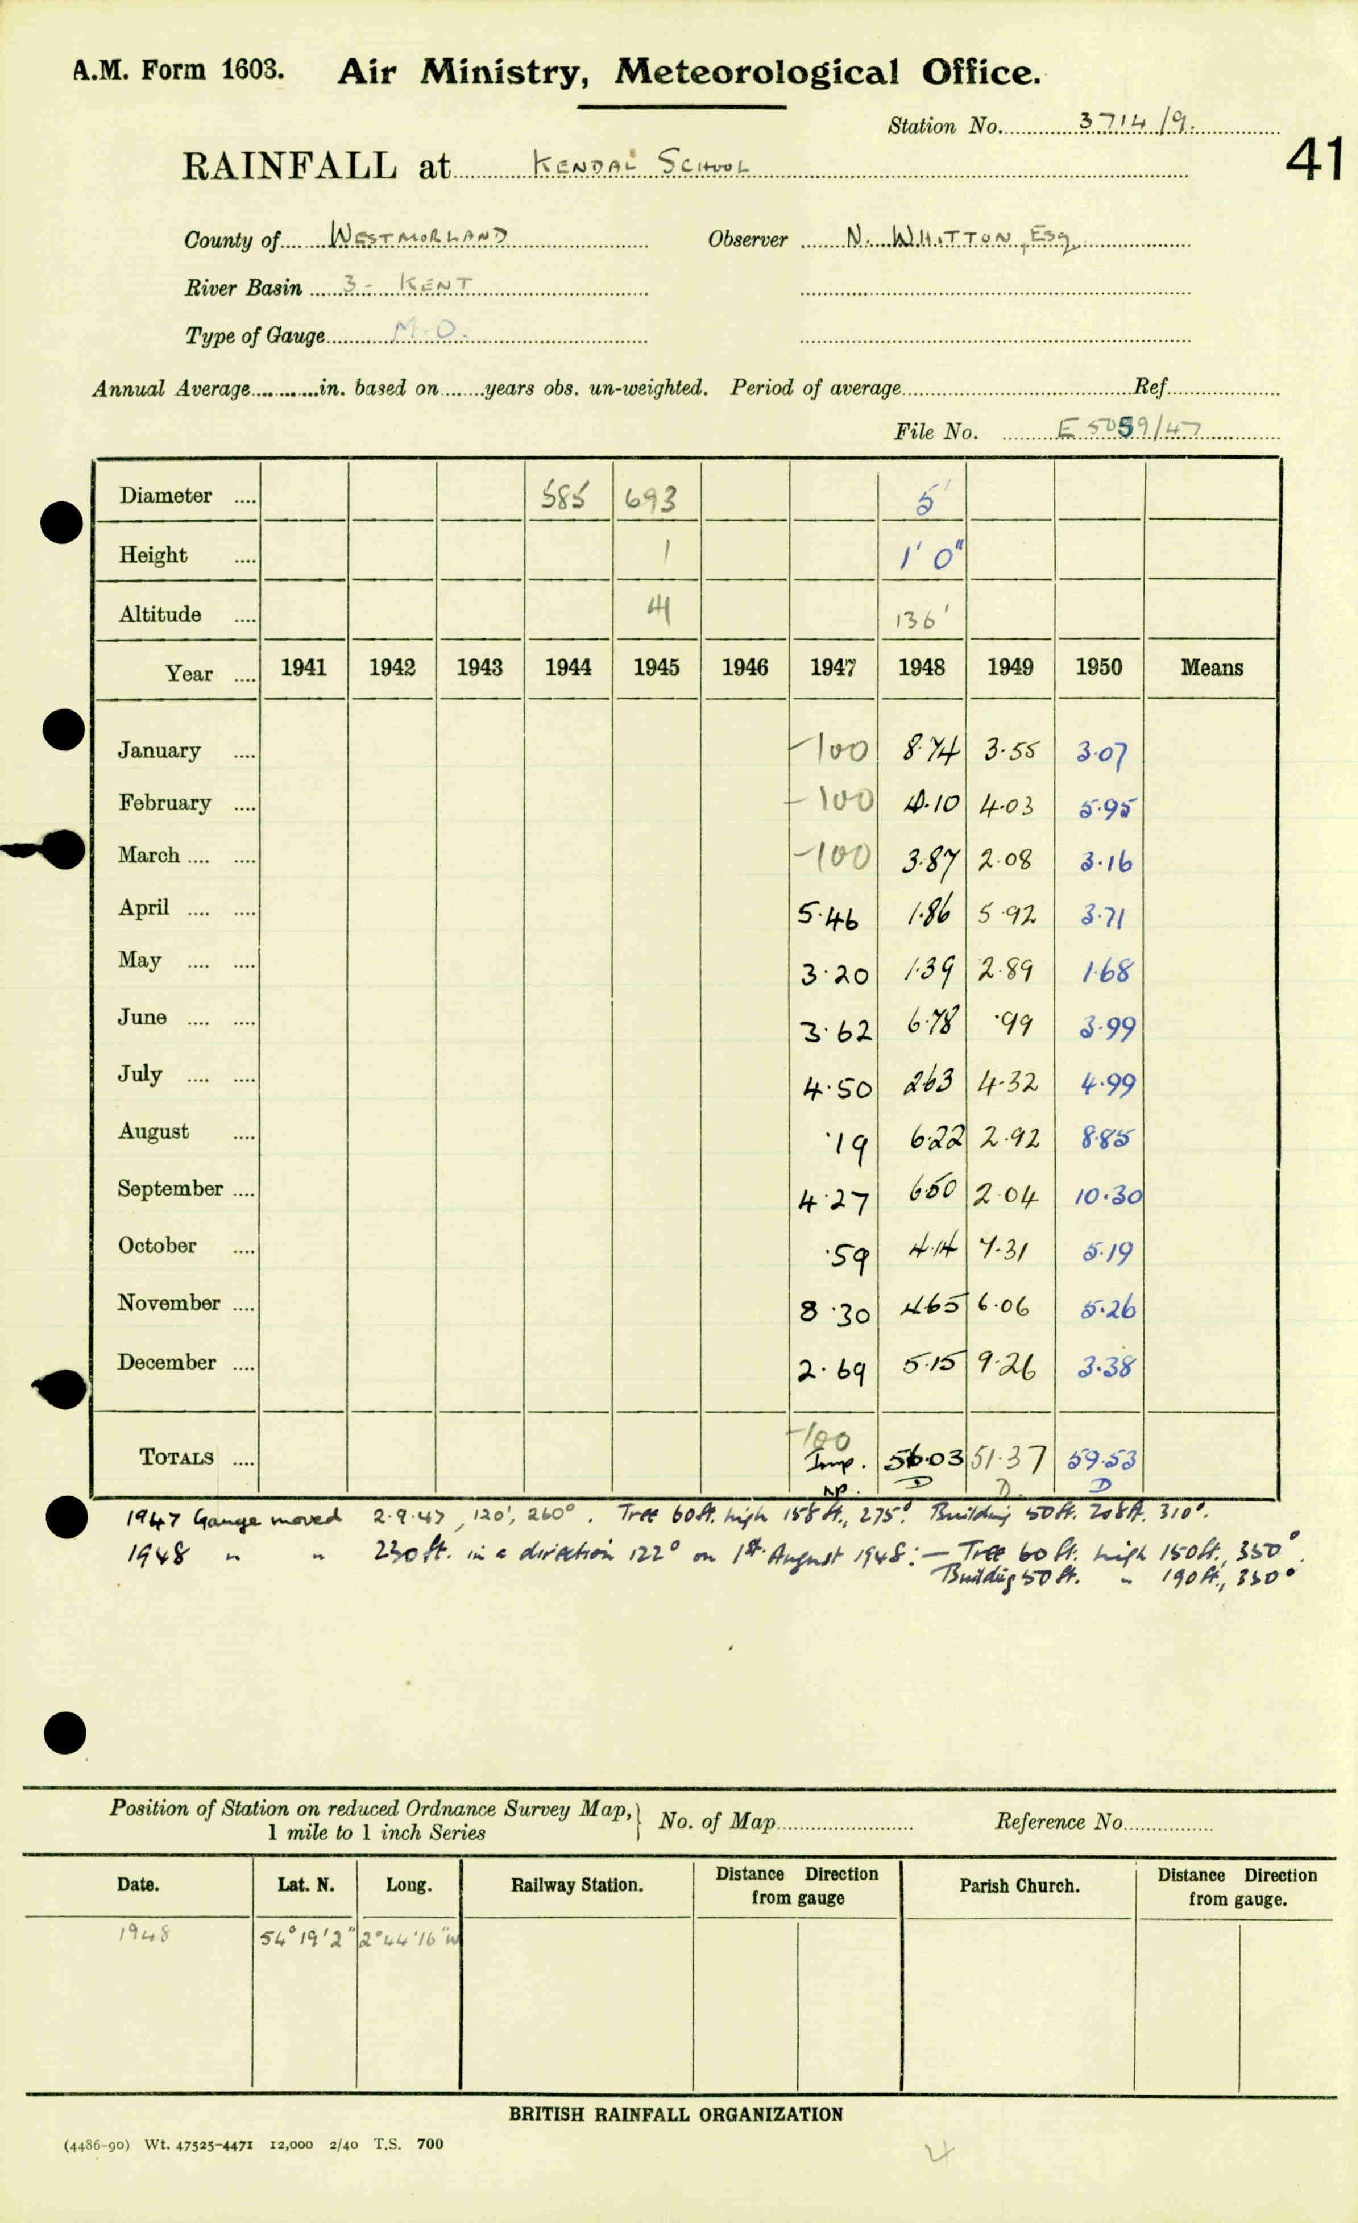 A.M. Form 1603. Air Ministry, Meteorological Office.
Station No. 3714/9.
41
RAINFALL at KENDAL SCHOOL
County of WESTMORLAND Observer N. WHITTON, Esq.
River Basin 3 - KENT
Type of Gauge M.O.
Annual Average in. based on years obs. un-weighted. Period of average Ref.
File No. E 5059/47
Diameter 585 693 5'
Height 1 1' 0"
Altitude 136'
Year 1941 1942 1943 1944 1945 1946 1947 1948 1949 1950 Means
January -100 8.74 3.55 3.07
February -100 4.10 4.03 5.95
March -100 3.87 2.08 3.16
April 5.46 1.86 5.92 3.71
May 3.20 1.39 2.89 1.68
June 3.62 6.78 .99 3.99
July 4.50 2.63 4.32 4.99
August .19 6.22 2.92 8.85
September 4.27 6.50 2.04 10.30
October .59 4.14 7.31 5.19
November 8.30 4.65 6.06 5.26
December 2.69 5.15 9.26 3.38
-100
TOTALS Imp. 56.03 51.37 59.53
NP. D D. D
1947 Gauge moved 2.9.47, 120', 260°. Tree 60ft. high 158 ft., 275°. Building 50ft. 208ft. 310°.
1948 " " 230 ft. in a direction 122° on 1st August 1948: — Tree 60 ft. high 150ft., 350°.
Building 50 ft. " 190 ft., 330°
Position of Station on reduced Ordnance Survey Map, 1 mile to 1 inch Series } No. of Map Reference No.
Date. Lat. N. Long. Railway Station. Distance Direction from gauge Parish Church. Distance Direction from gauge.
1948 54° 19' 2" 2° 44' 16" W
BRITISH RAINFALL ORGANIZATION
(4486-90) Wt. 47525-4471 12,000 2/40 T.S. 700